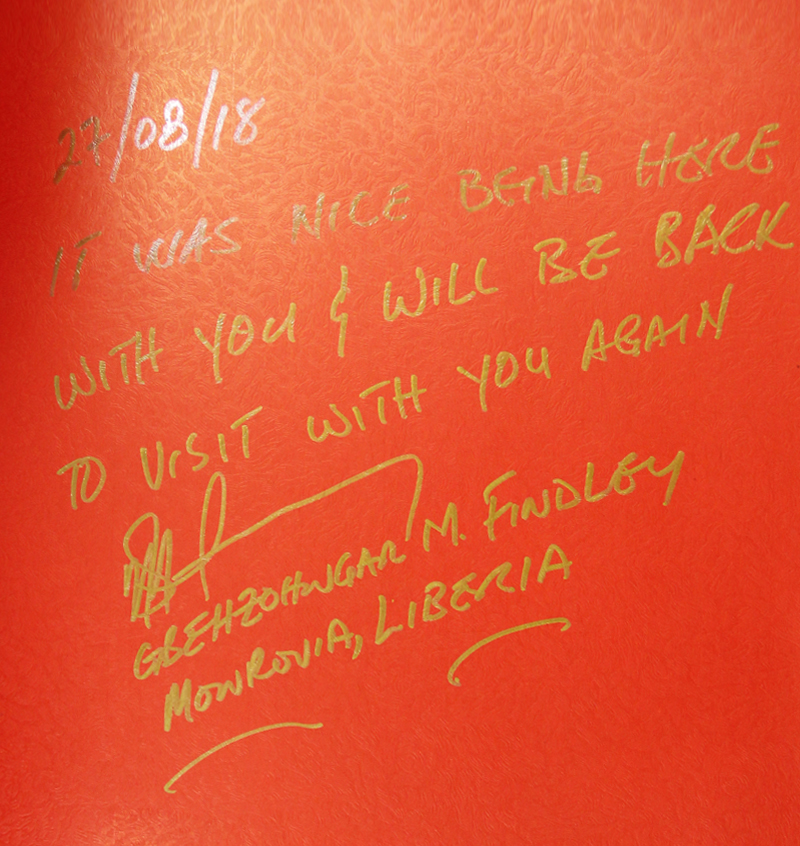 27/08/18
IT WAS NICE BEING HERE
WITH YOU & WILL BE BACK
TO VISIT WITH YOU AGAIN
GBEHZOHNGAR M. FINDLEY
MONROVIA, LIBERIA